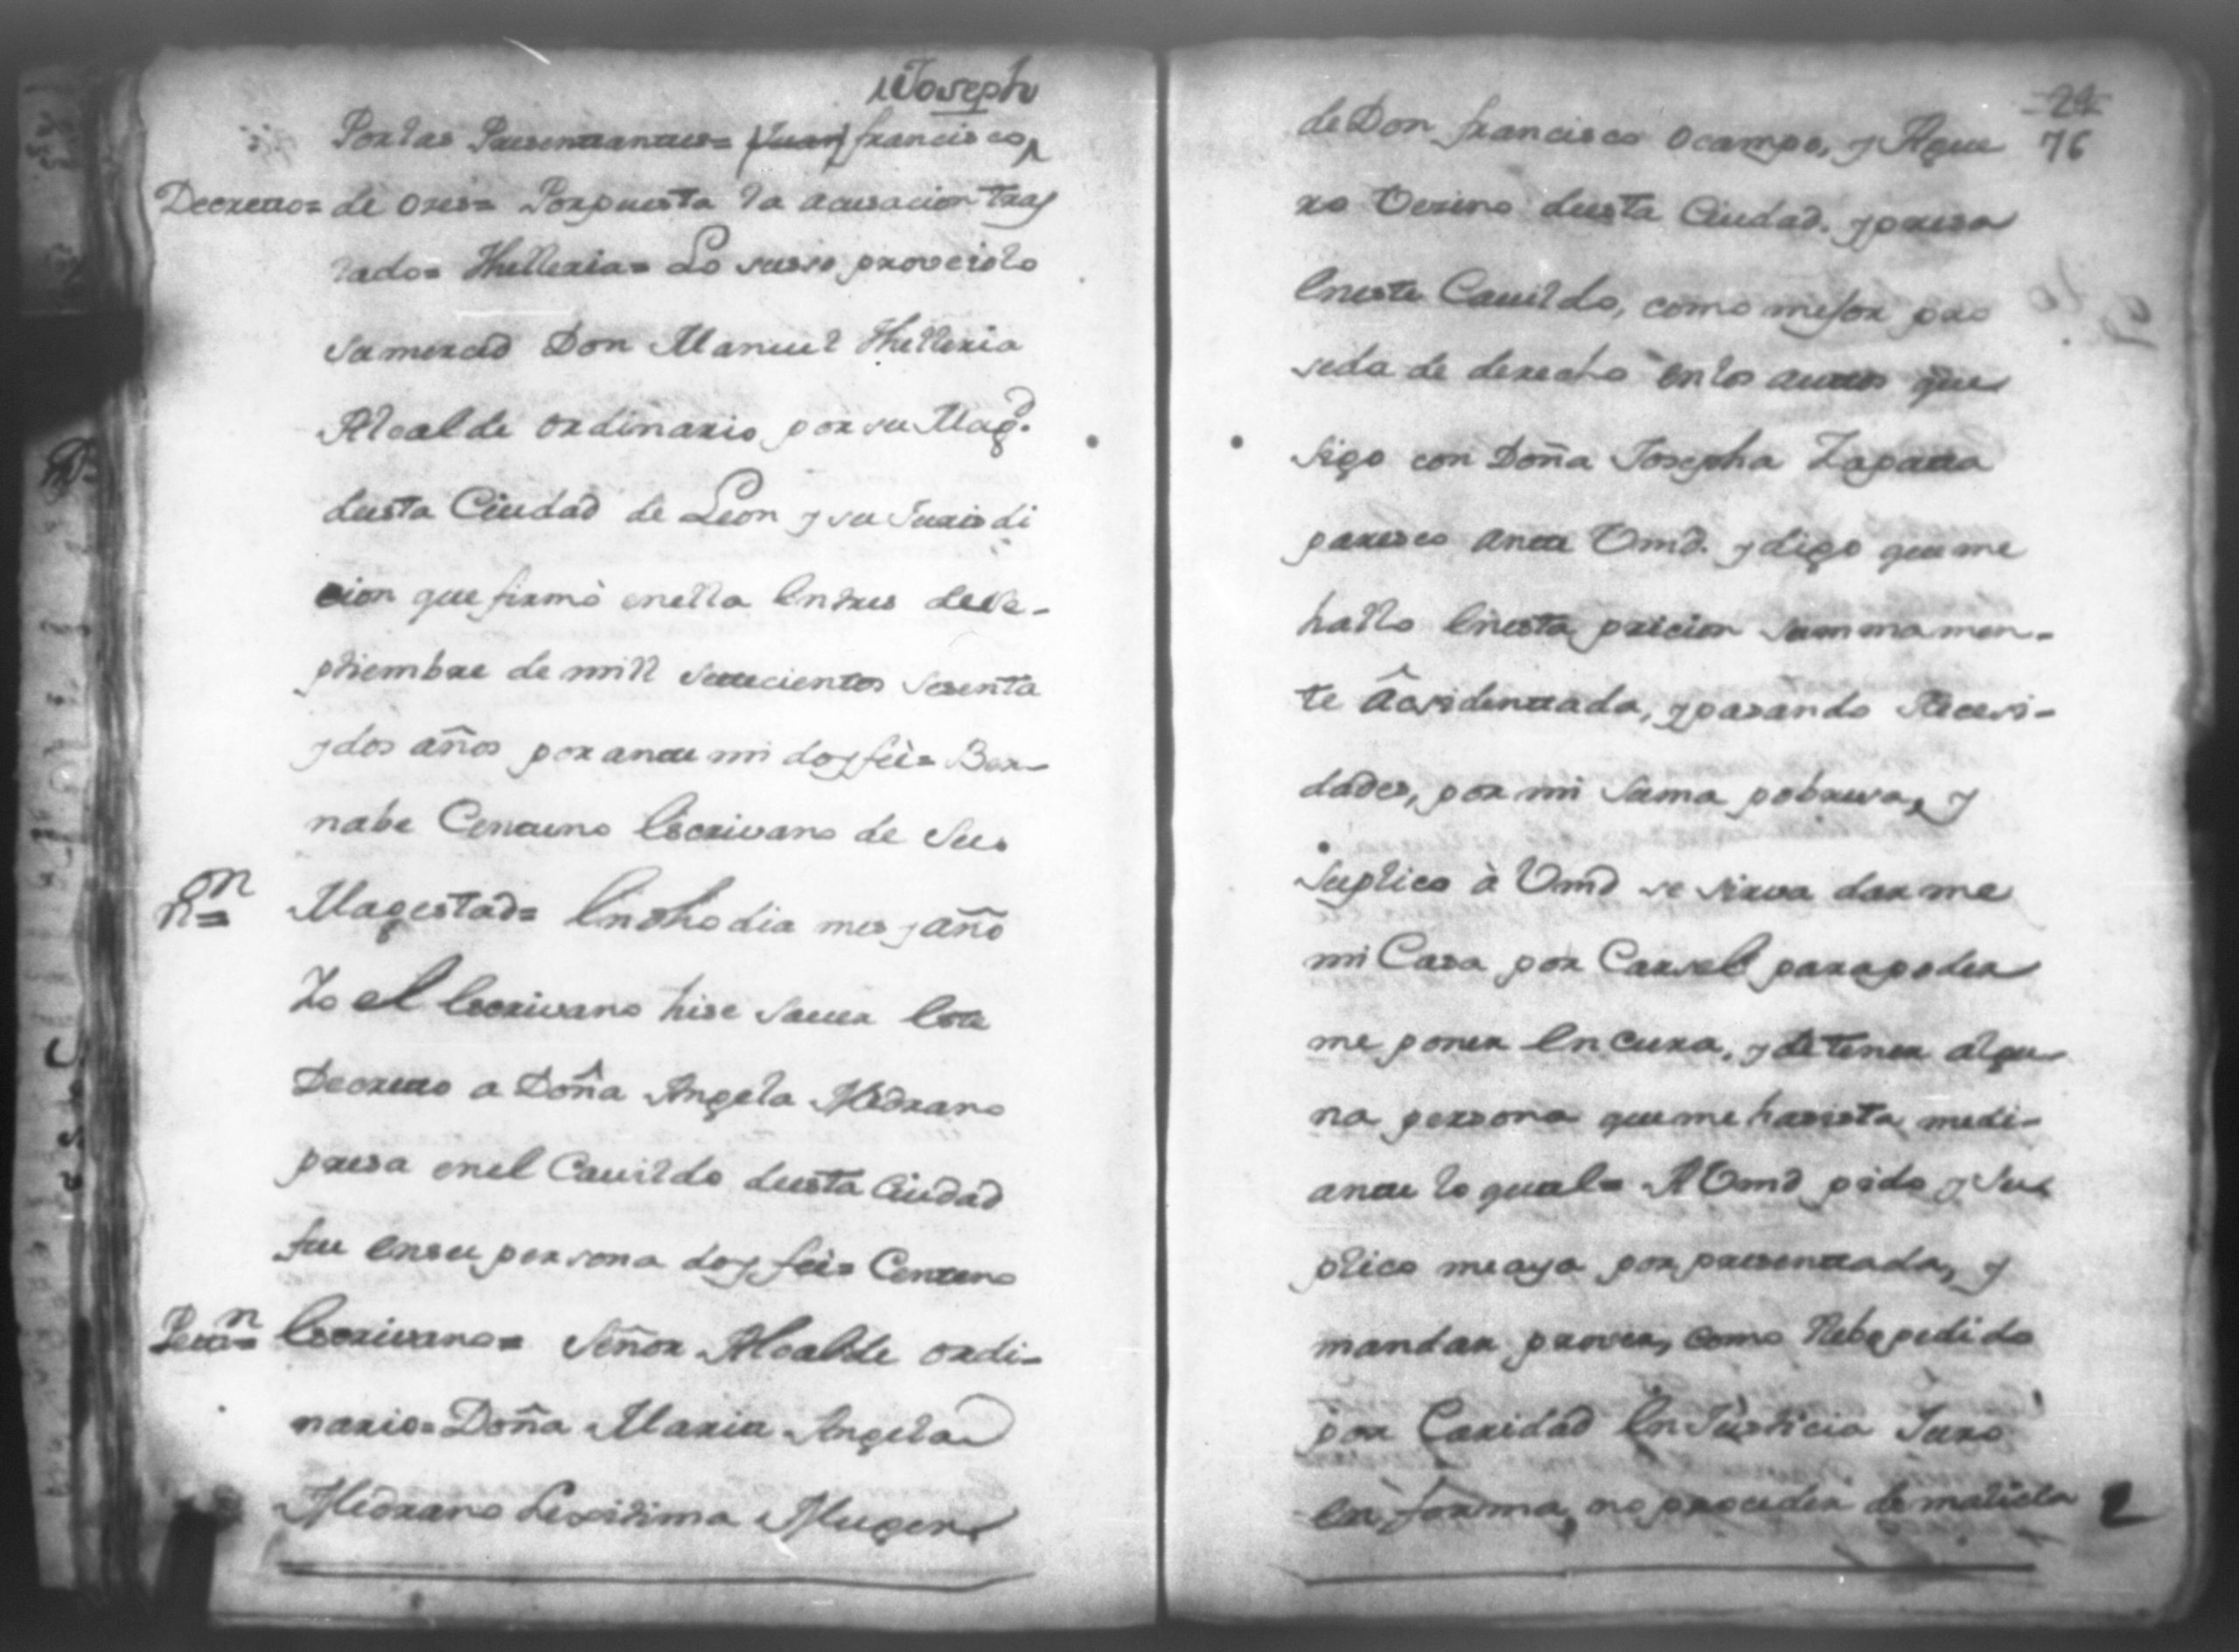 Joseph
Por las Presentantes= Juan francisco
Decretto= de ores= Porpuesta la acusacion tras
lado= Helleria= Lo susso proveiolo
sumerced Don Manuel Helleria
Alcalde ordinario por su Magd.
deesta Ciudad de Leon y su Jurisdi
cion que firmò enella en tres dese-
ptiembre de mill settecientos sesenta
y dos años por ante mi doy feè= Ber-
nabe Centeno Escrivano de Su
on
n= Magestad= En dho dia mes y año
Yo el Escrivano hise saver Este
Decretto a Doña Angela Medrano
presa enel Cavildo deesta Ciudad
fue ensu persona doy feè= Centeno
Pettn= Escrivano= Señor Alcalde ordi-
nario= Doña Maria Angela
Medrano Lexitima Muger
24
76
de Don francisco Ocampo, y Ague
ro Vecino deesta Ciudad. y presa
Eneste Cavildo, como mejor pro
seda de derecho en los auttos que
sigo con Doña Josepha Zapatta
paresco ante Vmd. y digo queme
hallo Enesta pricion summamen-
te âcsidenttada, y pasando Necesi-
dades, por mi suma pobresa, y
suplico à Vmd se sirva darme
mi Casa por Carsel parapoder
me poner En cura, y detener algu
na persona queme hasista medi-
ante lo qual= A Vmd pido y Su
plico meaya por presenttada, y
mandar prover, como llebo pedido
por Caridad En Justicia Juro
En forma, no proceder de malicia